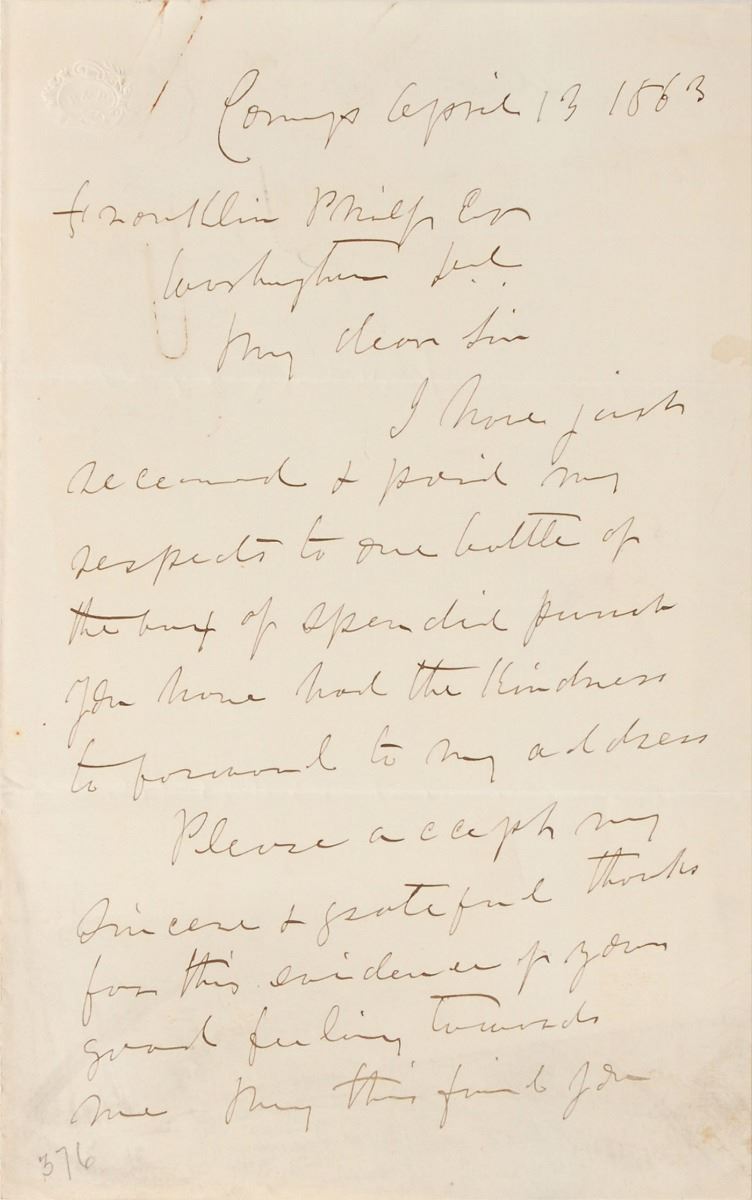 Camp April 13 1863
Franklin Philp Esq
Washington
My dear Sir
I have just
received & paid my
respects to one bottle of
the box of spendid punch
you have had the kindness
to forward to my address
Please accept my
sincere & grateful thanks
for this evidence of your
good feeling towards
me May this find you
376